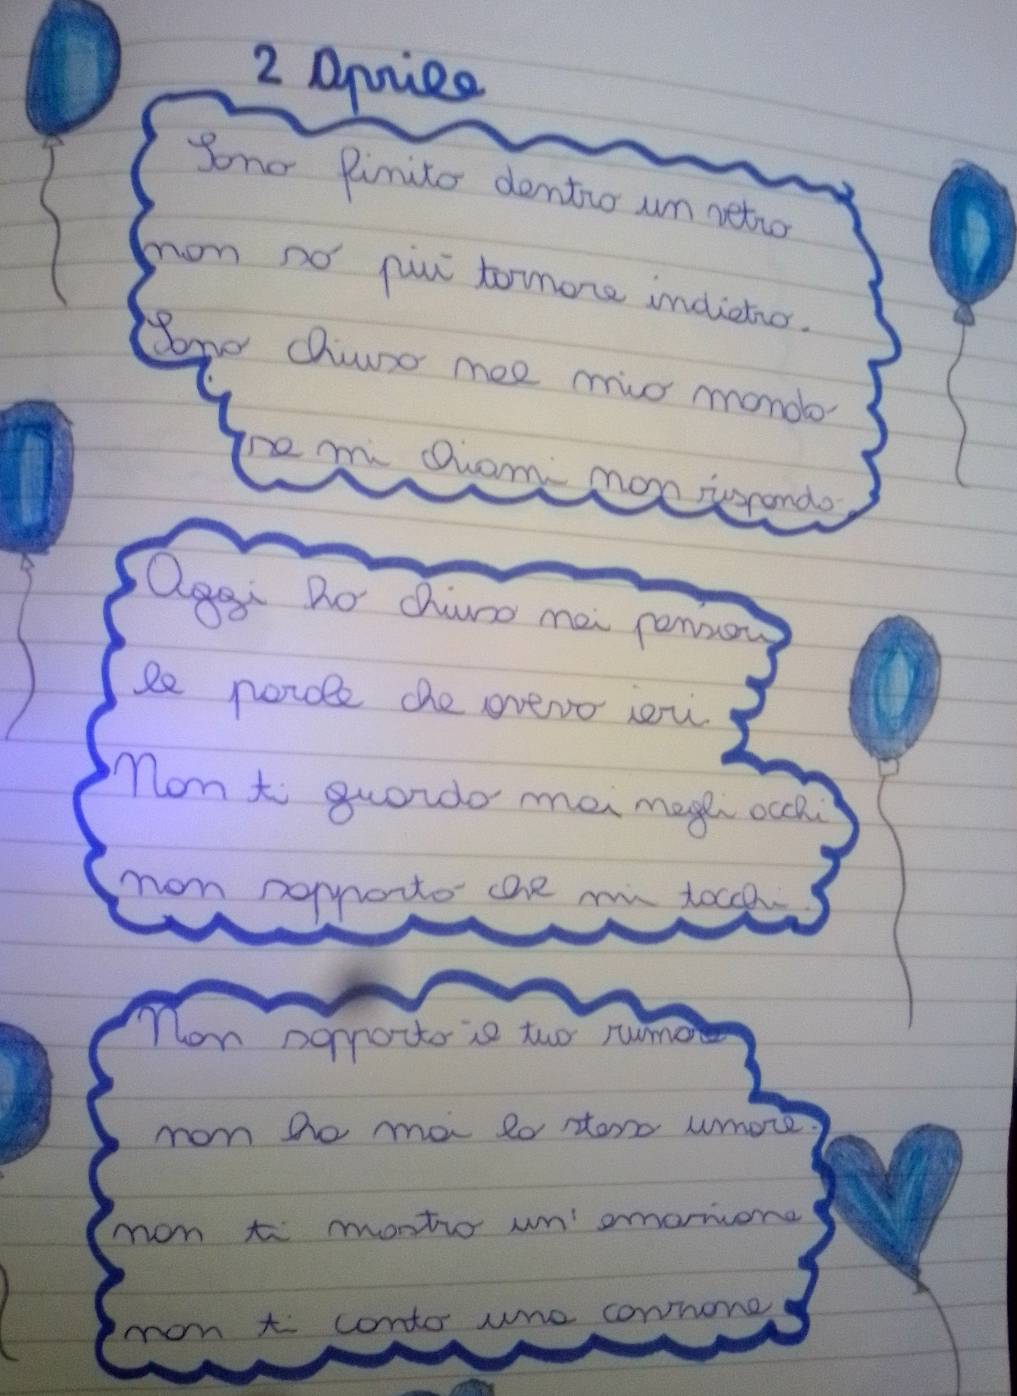 2 Aprile
Sono finito dentro un vetro
non so più tornare indietro.
Sono chiuso nel mio mondo
se mi chiami non rispondo.
Oggi ho chiuso nei pensieri
le parole che avevo ieri.
Non ti guardo mai negli occhi
non sopporto che mi tocchi.
Non sopporto il tuo rumore
non ho mai lo stesso umore.
non ti mostro un' emozione
non ti canto una canzone